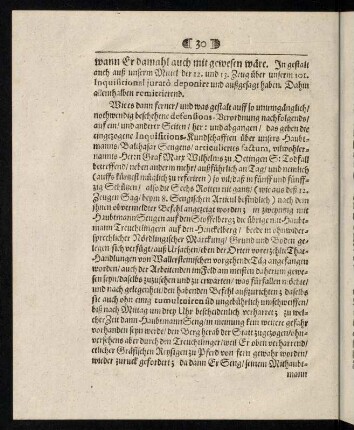 30
wann Er damahl auch mit gewesen wäre. In gestalt
auch auß unserm 12. und 13. Zeug über unserm 101.
Inquisitional juratò deponirt und außgesagt haben. Dahin
allenthalben remittirend.
Wie es dann ferner / und was gestalt auff so unumgänglich /
nothwendig beschehene defensions-Verordnung nachfolgends /
auf ein / und anderer Seiten / her : und abgangen / das geben die
angezogene Inquisitions-Kundschafften über unsers Haubt-
manns / Balthasar Sengens / articulirtes factum, wilwohler-
nannts Herrn Graf Marx Wilhelms zu Oetingen S: Todfall
betreffend / neben andern mehr / außführlich an Tag / und nemlich
(auffs kürtzest müglich zu referiren) so vil / daß in fünff und fünff-
zig Schützen / also die Sechs Rotten nit gantz / (wie aus deß 12.
Zeugen Sag / beym 8. Sengischen Articul befindlich) nach dem
ihnen obvermeldter Befehl angezeigt worden; in zweyen mit
Haubtmann Sengen auf den Stoffelsberg; die übrige mit Haubt-
mann Treuchtlingern auf den Henckelberg / beede in ohnwider-
sprechlicher Nördlingischer Marckung / Grund und Boden ge-
legen sich verfügt / auß Ursachen / eben der Orten vorerzehlte That-
Handlungen von Wallersteinischen vorgehende Täg angefangen
worden / auch der Arbeitenden im Feld am meisten daherum gewe-
sen seyn / daselbs zuzusehen und zu erwarten / was fürfallen möchte /
und nach gelegenheit den habenden Befehl außzurichten; daselbs
sie auch ohn einig tumultuiren und ungebührlich umschweiffen /
biß nach Mittag um drey Uhr bescheidenlich verharret; zu wel-
cher Zeit dann Haubtmann Seng / in meinung kein weitere gefahr
vorhanden seyn werde / den Berg herab der Statt zugezogen / ohn-
versehens aber durch den Treuchtlinger / weil Er oben verharrend /
etlicher Gräfischen Reysigen zu Pferd von fern gewahr worden /
wieder zuruck gefordert; da dann Er Seng / seinem Mithaubt-
mann